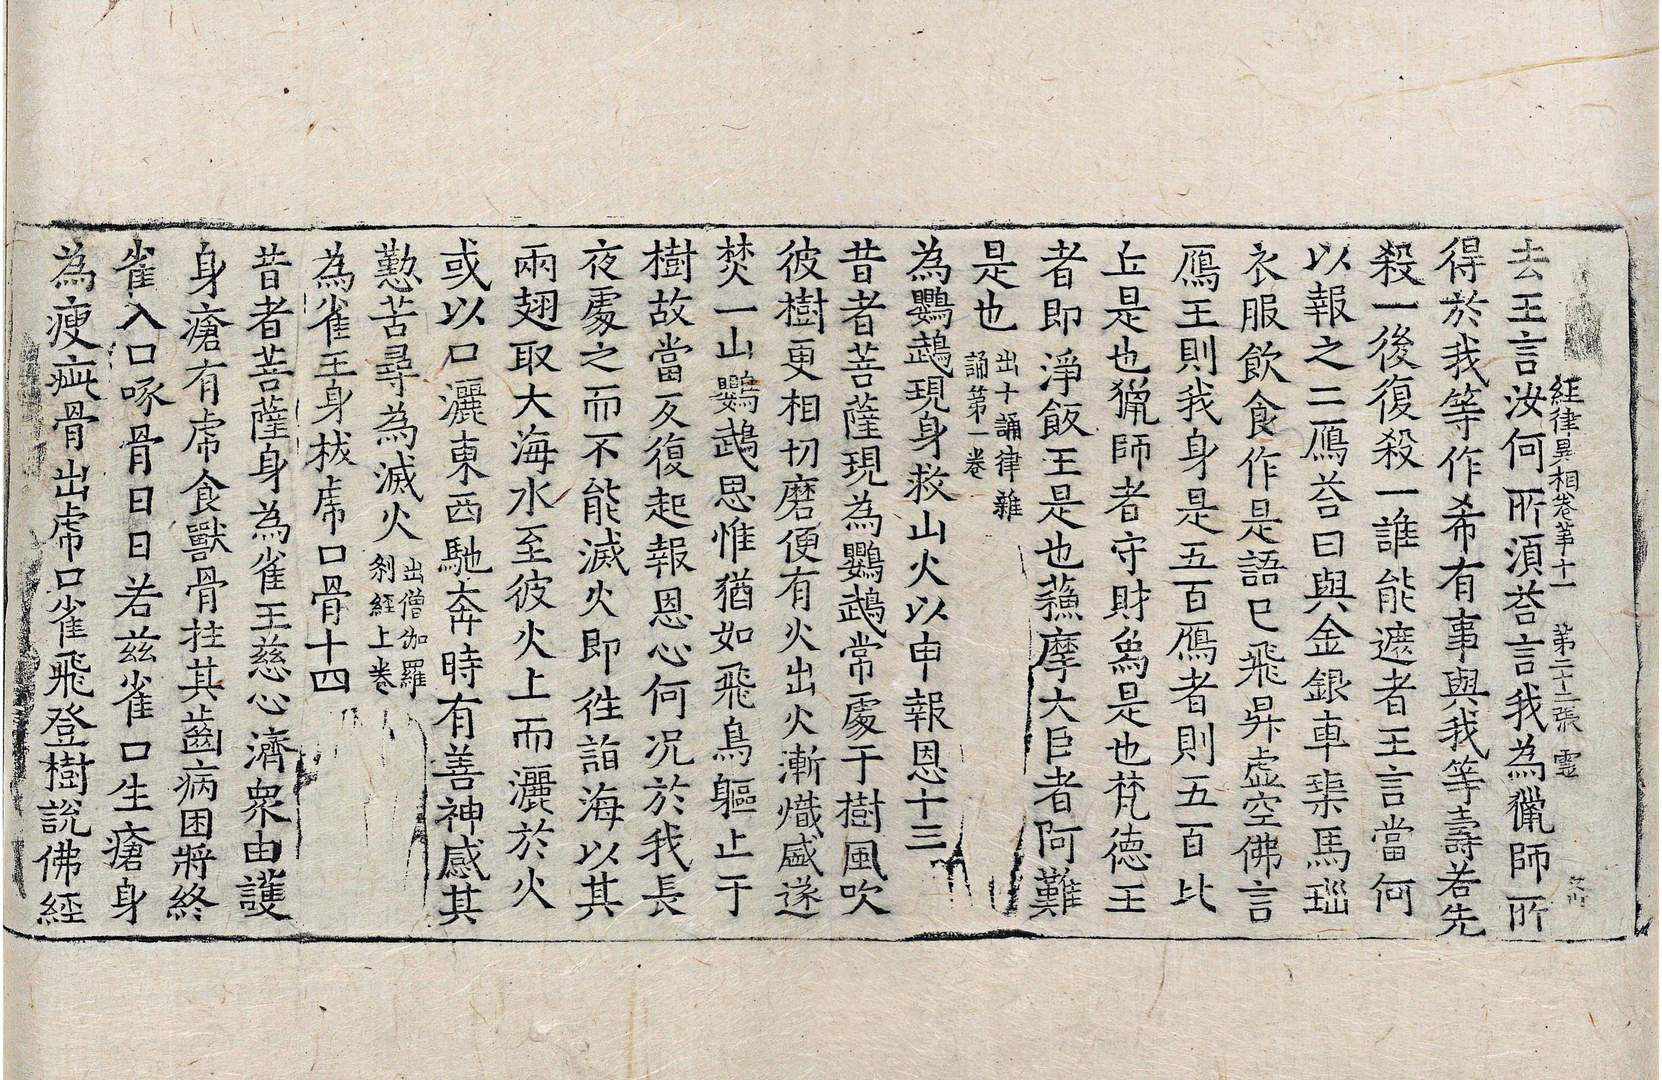 經律異相卷苐十一 第二十二張 霊
去王言汝何所湏荅言我為獵師所
得於我等作希有事與我等壽若先
殺一後復殺一誰能遮者王言當何
以報之二鴈荅曰與金銀車𤦲馬瑙
衣服飲食作是語已飛昇虛空佛言
鴈王則我身是五百鴈者則五百比
丘是也獵師者守財鴈是也梵德王
者即淨飯王是也蘓摩大臣者阿難
是也 出十誦律雜誦第一卷
為鸚鵡現身救山火以申報恩十三
昔者菩薩現為鸚鵡常處于樹風吹
彼樹更相切磨便有火出火漸熾盛遂
焚一山鸚鵡思惟猶如飛鳥軀止于
樹故當反復起報恩心何況於我長
夜處之而不能滅火即往詣海以其
兩翅取大海水至彼火上而灑於火
或以口灑東西馳奔時有善神感其
懃苦尋為滅火 出僧伽羅刹經上卷
為雀王身拔虎口骨十四
昔者菩薩身為雀王慈心濟衆由護
身瘡有虎食獸骨拄其齒病困將終
雀入口啄骨日日若兹雀口生瘡身
為瘦疵骨出虎口雀飛登樹說佛經